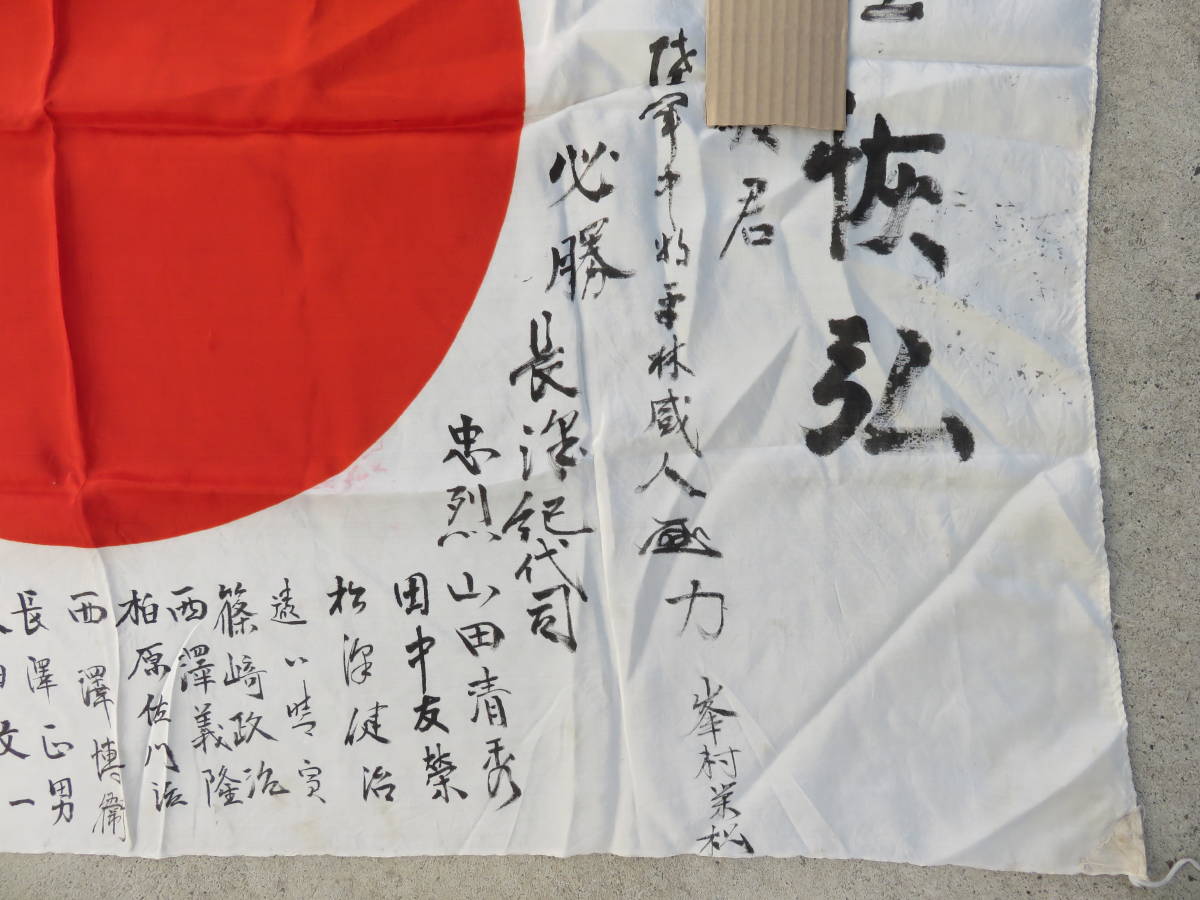 恢弘
君
陸軍中将平林盛人
尽力
峯村栄松
必勝
長澤紀代司
忠烈
山田清秀
田中友榮
松澤健治
篠崎政治
西澤義隆
柏原佐
西澤博
長澤正男
文一